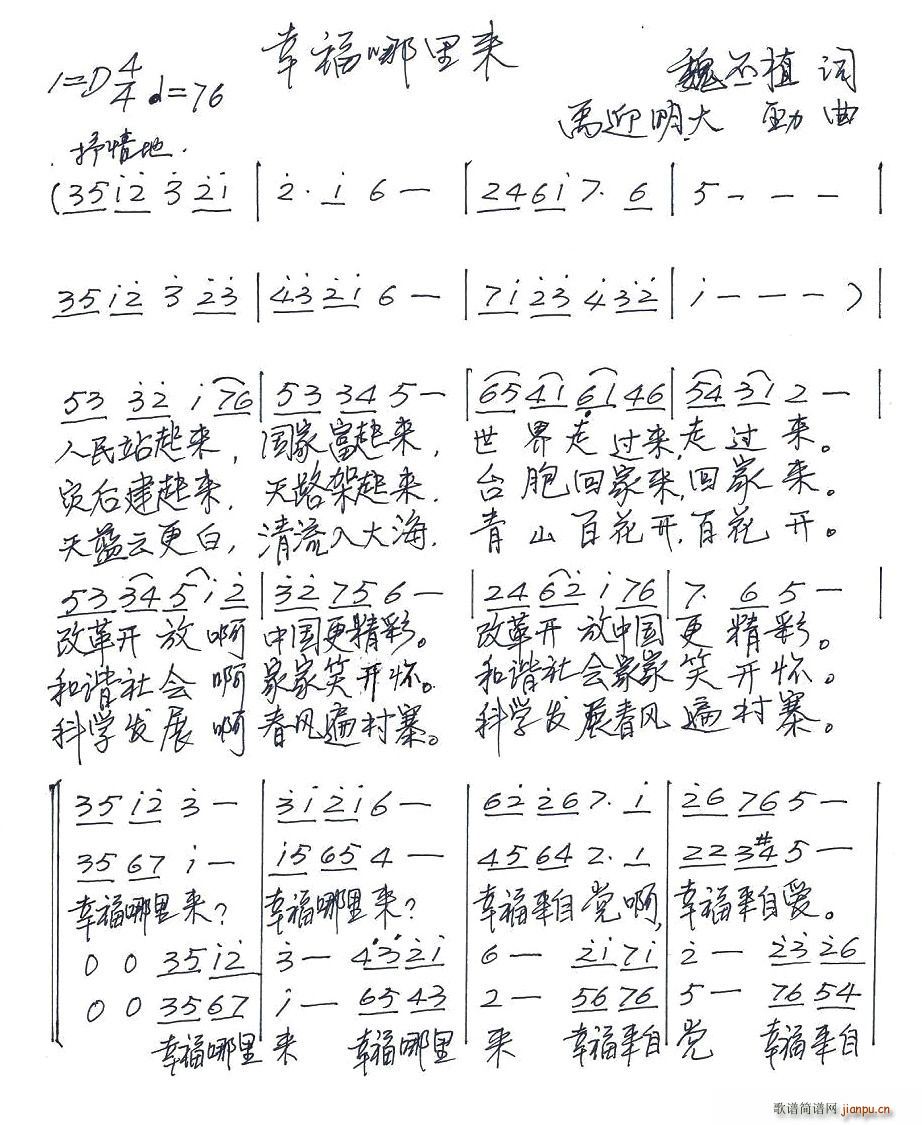 幸福哪里来
1=D 4/4 ♩=76
魏丕植 词
禹迎明 大劲 曲
抒情地.
(35 i̇2̇ 3̇ 2̇i̇ | 2̇. i̇ 6 — | 24 6i̇ 7. 6 | 5 — — — |
35 i̇2̇ 3̇ 2̇3̇ | 4̇3̇ 2̇i̇ 6 — | 7i̇ 2̇3̇ 4̇ 3̇2̇ | i̇ — — — ) |
53 3̇2̇ i̇ 76 | 53 34 5 — | 65 41 6̣1 46 | 54 31 2 — |
人民站起来, 国家富起来, 世界走过来,走过来。
灾后建起来, 天路架起来, 台胞回家来,回家来。
天蓝云更白, 清流入大海, 青山百花开,百花开。
53 34 5 i̇ 2̇ | 3̇2̇ 75 6 — | 24 62̇ i̇ 76 | 7. 6 5 — |
改革开放啊 中国更精彩。 改革开放中国更精彩。
和谐社会啊 家家笑开怀。 和谐社会家家笑开怀。
科学发展啊 春风遍村寨。 科学发展春风遍村寨。
35 i̇2̇ 3̇ — | 3̇i̇ 2̇i̇ 6 — | 62̇ 2̇6 7. i̇ | 2̇6 76 5 — |
35 67 i̇ — | i̇5 65 4 — | 45 64 2. 1 | 22 3#4 5 — |
幸福哪里来? 幸福哪里来? 幸福来自党啊, 幸福来自爱。
0 0 35 i̇2̇ | 3̇ — 4̇3̇ 2̇i̇ | 6 — 2̇i̇ 7i̇ | 2̇ — 2̇3̇ 2̇6 |
0 0 35 67 | i̇ — 65 43 | 2 — 56 76 | 5 — 76 54 |
幸福哪里 来 幸福哪里 来 幸福来自 党 幸福来自
歌谱简谱网 jianpu.cn